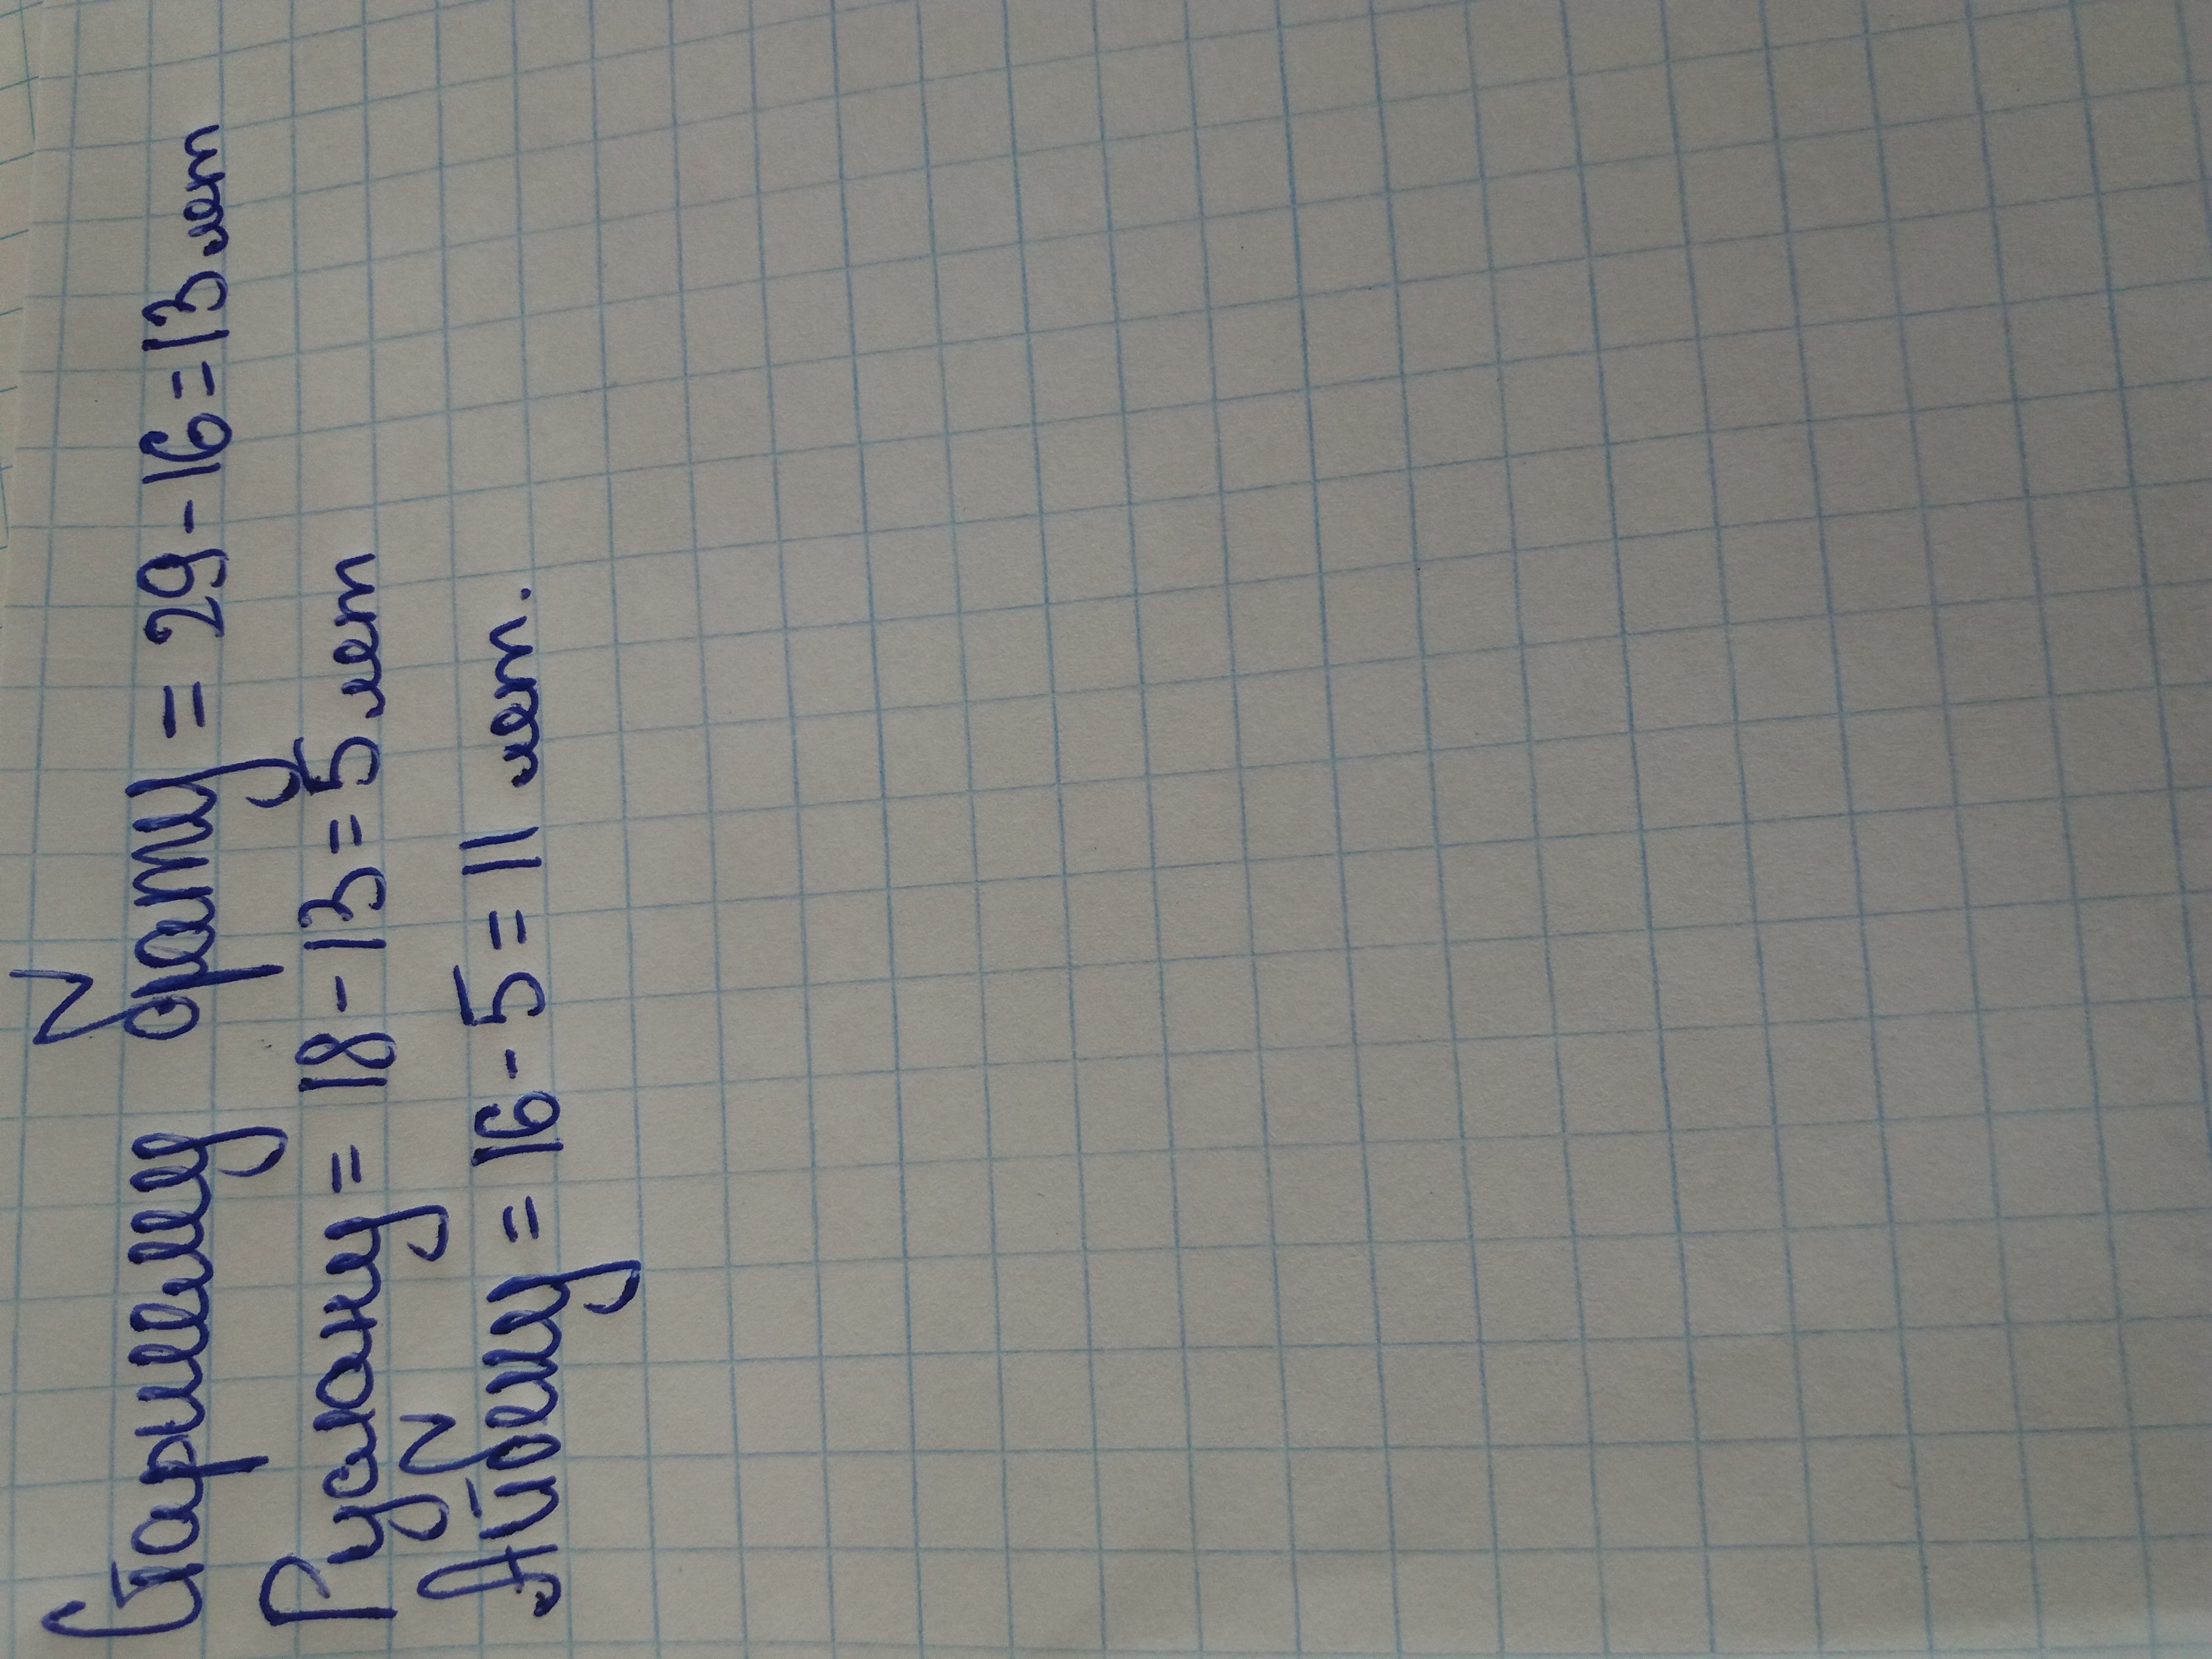 Старшему брату = 29 - 16 = 13 лет
Руслану = 18 - 13 = 5 лет
Айбеку = 16 - 5 = 11 лет.